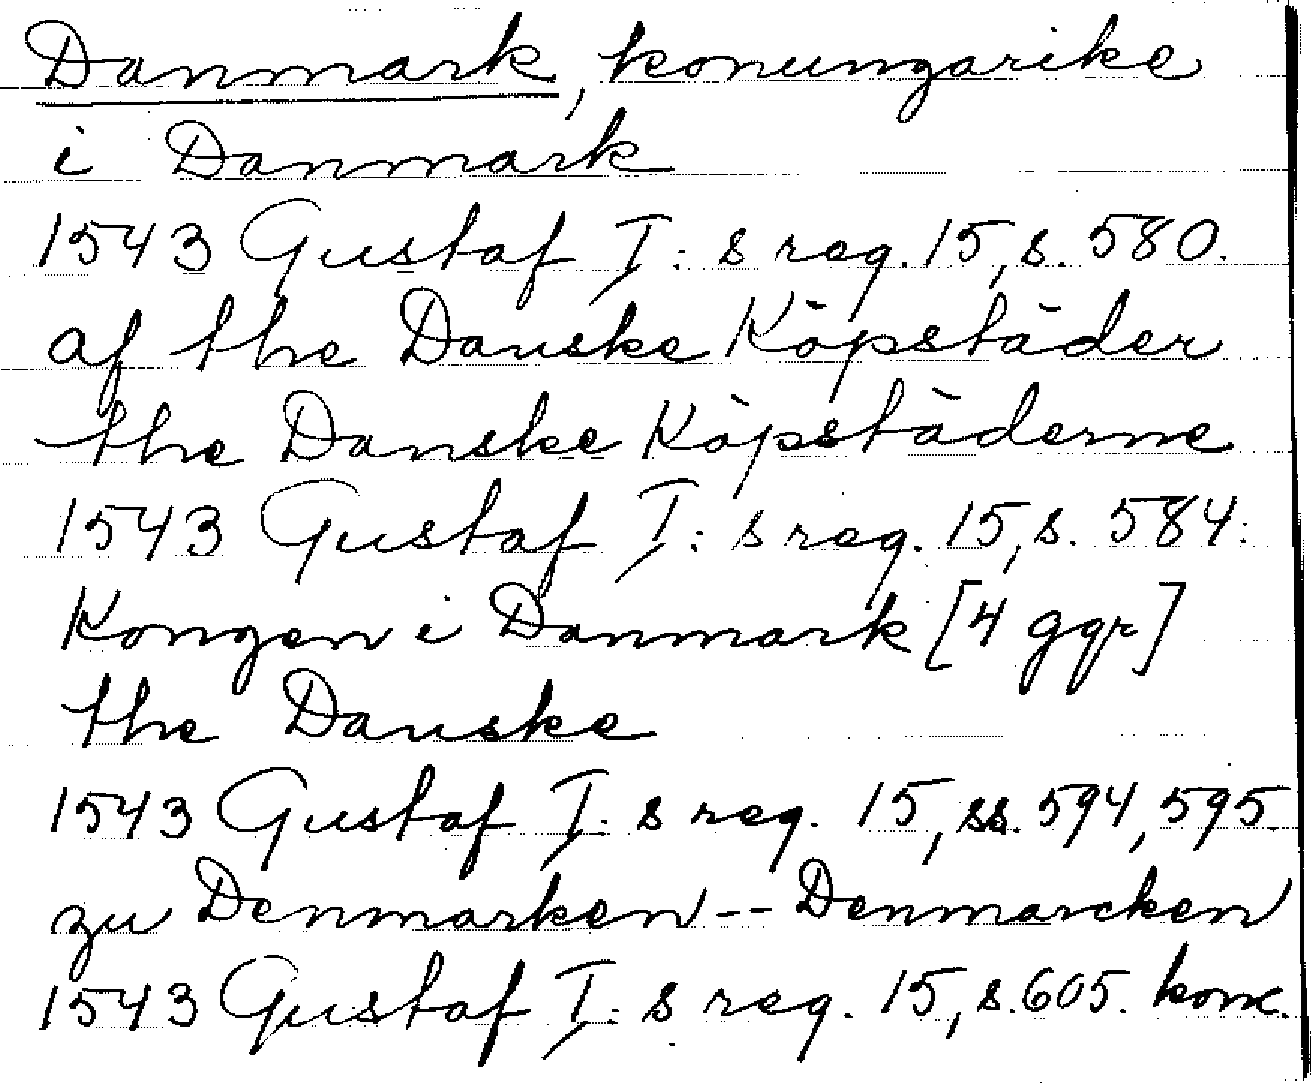 Danmark, konungarike
i Danmark
1543 Gustaf I:s reg. 15, s. 580.
af the Danske Köpstäder
the Danske Köpstäderne
1543 Gustaf I:s reg. 15, s. 584:
Kongen i Danmark [4 ggr]
the Danske
1543 Gustaf I:s reg. 15, ss. 594, 595.
zu Denmarken -- Denmarcken
1543 Gustaf I:s reg. 15, s. 605. konc.